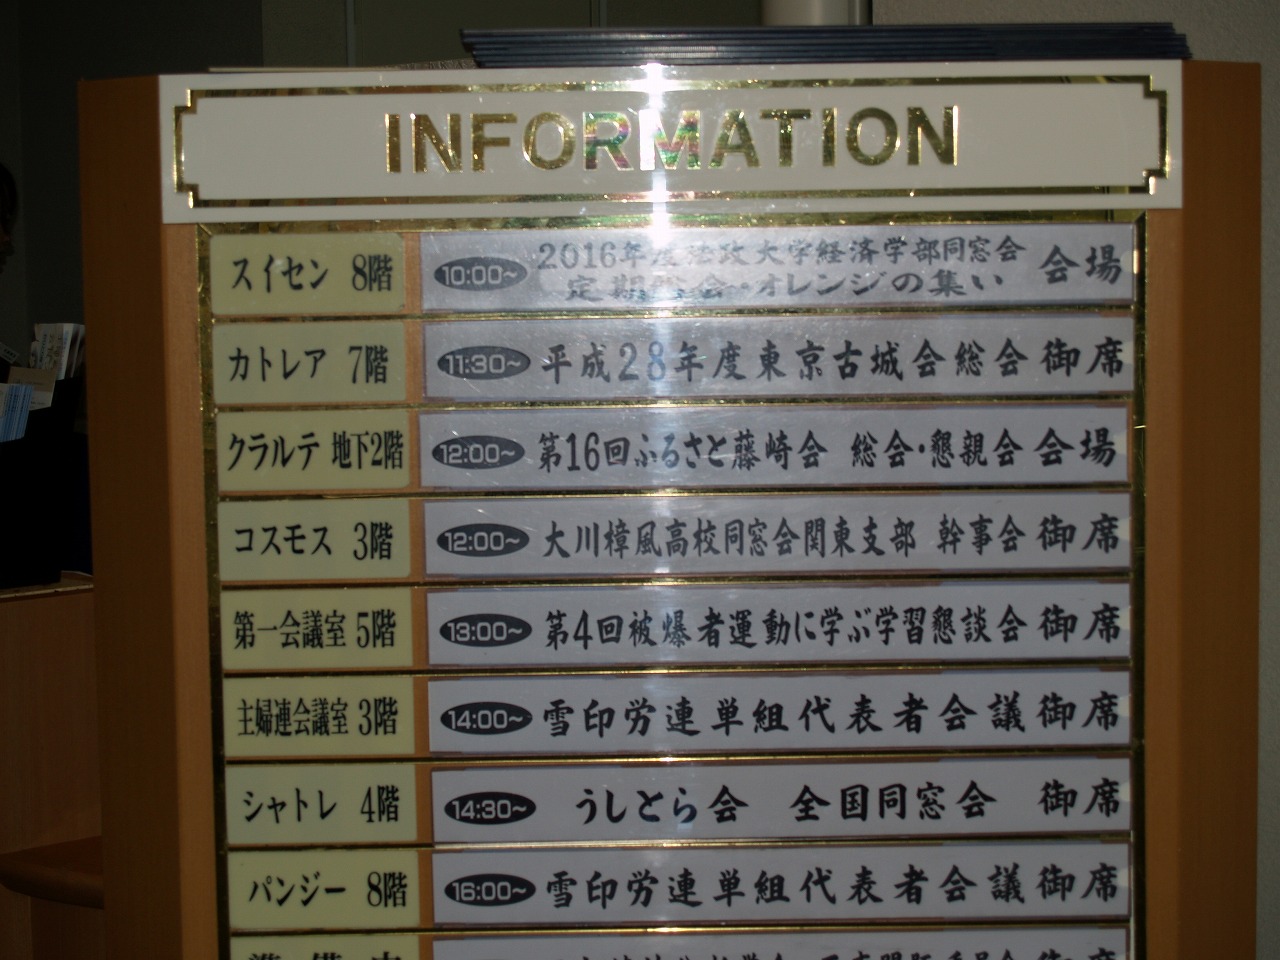 INFORMATION
スイセン 8階 10:00~ 2016年度法政大学経済学部同窓会 会場
定期総会・オレンジの集い
カトレア 7階 11:30~ 平成28年度東京古城会総会 御席
クラルテ 地下2階 12:00~ 第16回ふるさと藤崎会 総会・懇親会 会場
コスモス 3階 12:00~ 大川樟風高校同窓会関東支部 幹事会 御席
第一会議室 5階 13:00~ 第4回被爆者運動に学ぶ学習懇談会 御席
主婦連会議室 3階 14:00~ 雪印労連単組代表者会議 御席
シャトレ 4階 14:30~ うしとら会 全国同窓会 御席
パンジー 8階 16:00~ 雪印労連単組代表者会議 御席